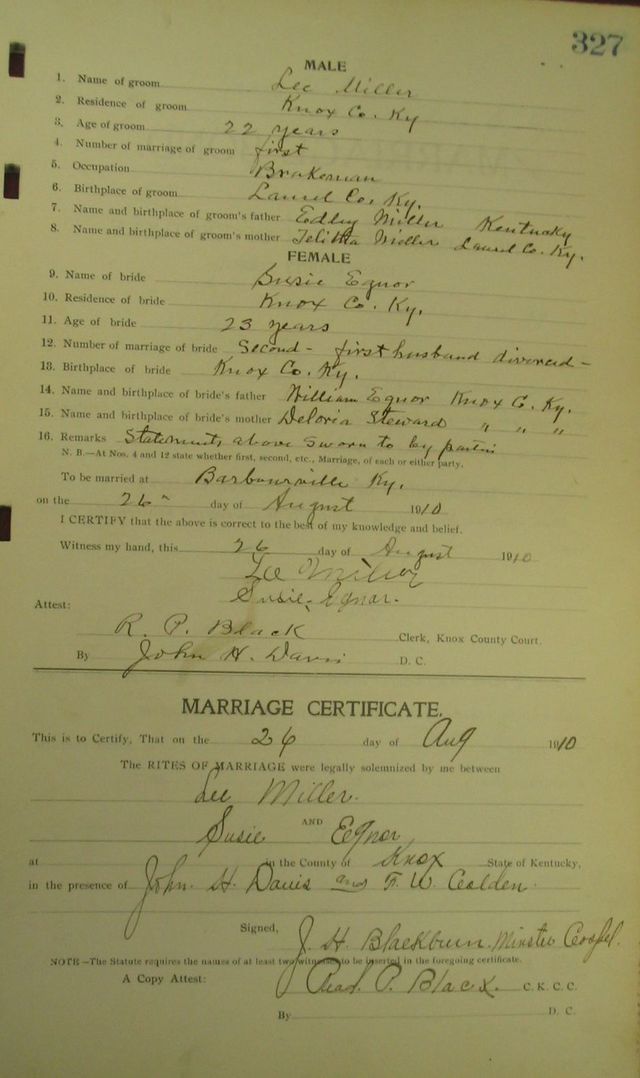 327
MALE
1. Name of groom Lee Miller
2. Residence of groom Knox Co. Ky
3. Age of groom 22 years
4. Number of marriage of groom first
5. Occupation Brakeman
6. Birthplace of groom Laurel Co. Ky.
7. Name and birthplace of groom's father Edley Miller Kentucky
8. Name and birthplace of groom's mother Miller Laurel Co. Ky.
FEMALE
9. Name of bride Susie Egnor
10. Residence of bride Knox Co. Ky.
11. Age of bride 23 years
12. Number of marriage of bride Second - first husband divorced -
13. Birthplace of bride Knox Co. Ky.
14. Name and birthplace of bride's father William Egnor Knox Co. Ky.
15. Name and birthplace of bride's mother Deloria Steward " " "
16. Remarks Statements above sworn to by parties
N. B.—At Nos. 4 and 12 state whether first, second, etc., Marriage, of each or either party.
To be married at Barbourville Ky.
on the 26" day of August 1910
I CERTIFY that the above is correct to the best of my knowledge and belief.
Witness my hand, this 26 day of August 1910
Lee Miller
Susie Egnor.
Attest:
R. P. Black Clerk, Knox County Court.
By John H. Davis D. C.
MARRIAGE CERTIFICATE.
This is to Certify, That on the 26 day of Aug 1910
The RITES OF MARRIAGE were legally solemnized by me between
Lee Miller.
AND
Susie Egnor
at in the County of Knox State of Kentucky,
in the presence of John H. Davis and F. W. Golden
Signed,
J. H. Blackburn. Minster Gospel.
NOTE—The Statute requires the names of at least two witnesses to be inserted in the foregoing certificate.
A Copy Attest: P. Black. C. K. C. C.
By D. C.